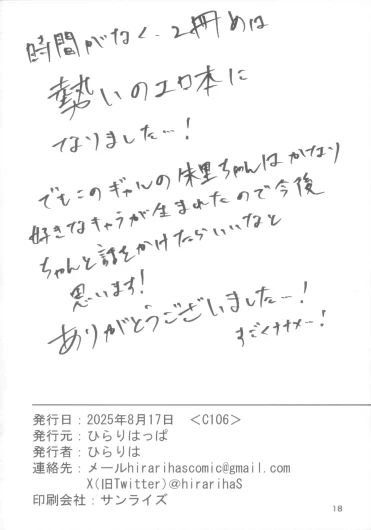 時間がなく、2冊めは
勢いのエロ本に
なりました…!
でもこのギャルの朱里ちゃんはかなり
好きなキャラが生まれたので今後
ちゃんと話をかけたらいいなと
思います!
ありがとうございました…!
すごくナナメ…!
発行日：2025年8月17日　<C106>
発行元：ひらりはっぱ
発行者：ひらりは
連絡先：メールhirarihascomic@gmail.com
X(旧Twitter)@hirarihaS
印刷会社：サンライズ
18